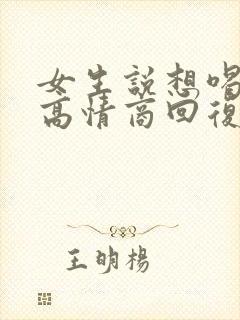 女生說想喝
高情商回復
王明楊